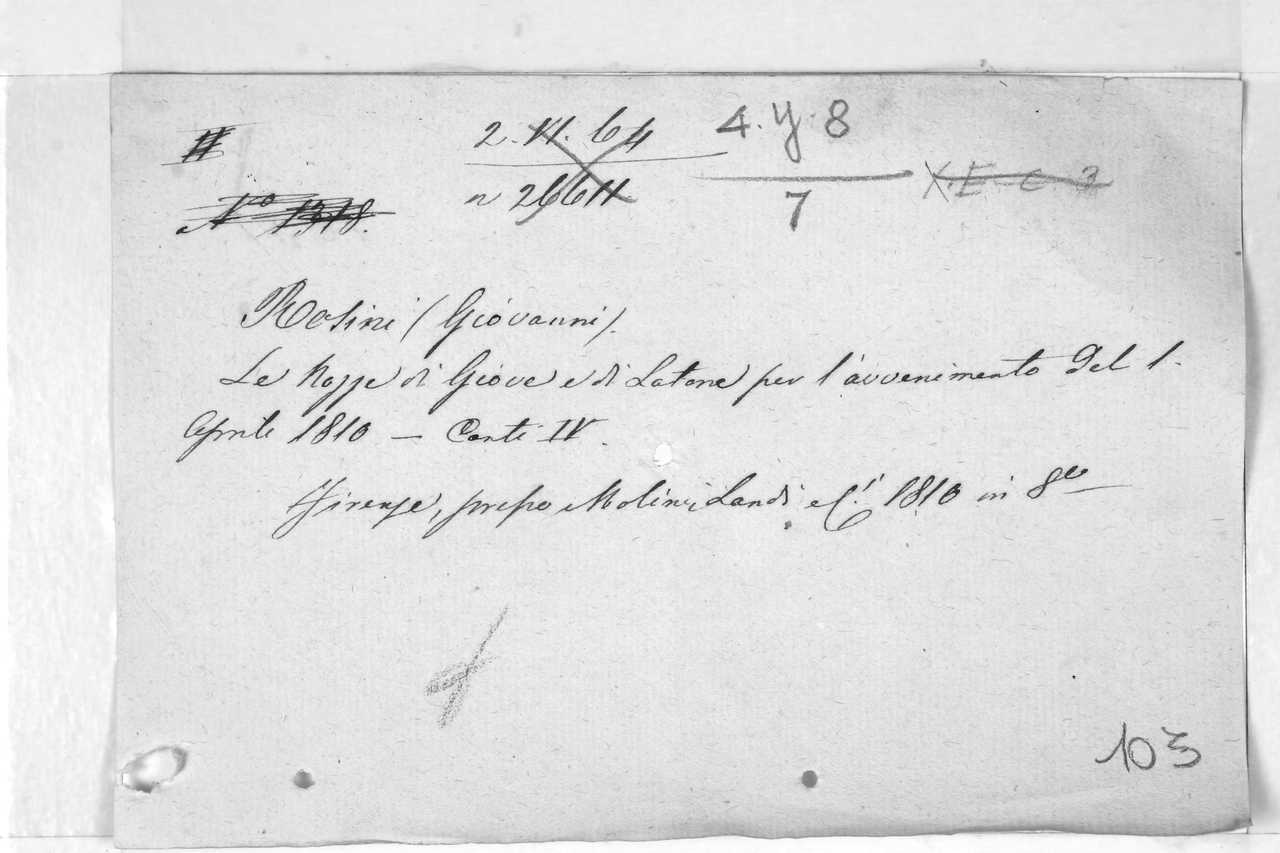 2. VI. 64
4. Y. 8
n 26611
7
X.E C 3
No 1318.
Rosini (Giovanni).
Le Nozze di Giove e di Latona per l'avvenimento del 1.
Aprile 1810 — Canti IV.
Firenze, presso Molini, Landi e C.i 1810 in 8vo
103